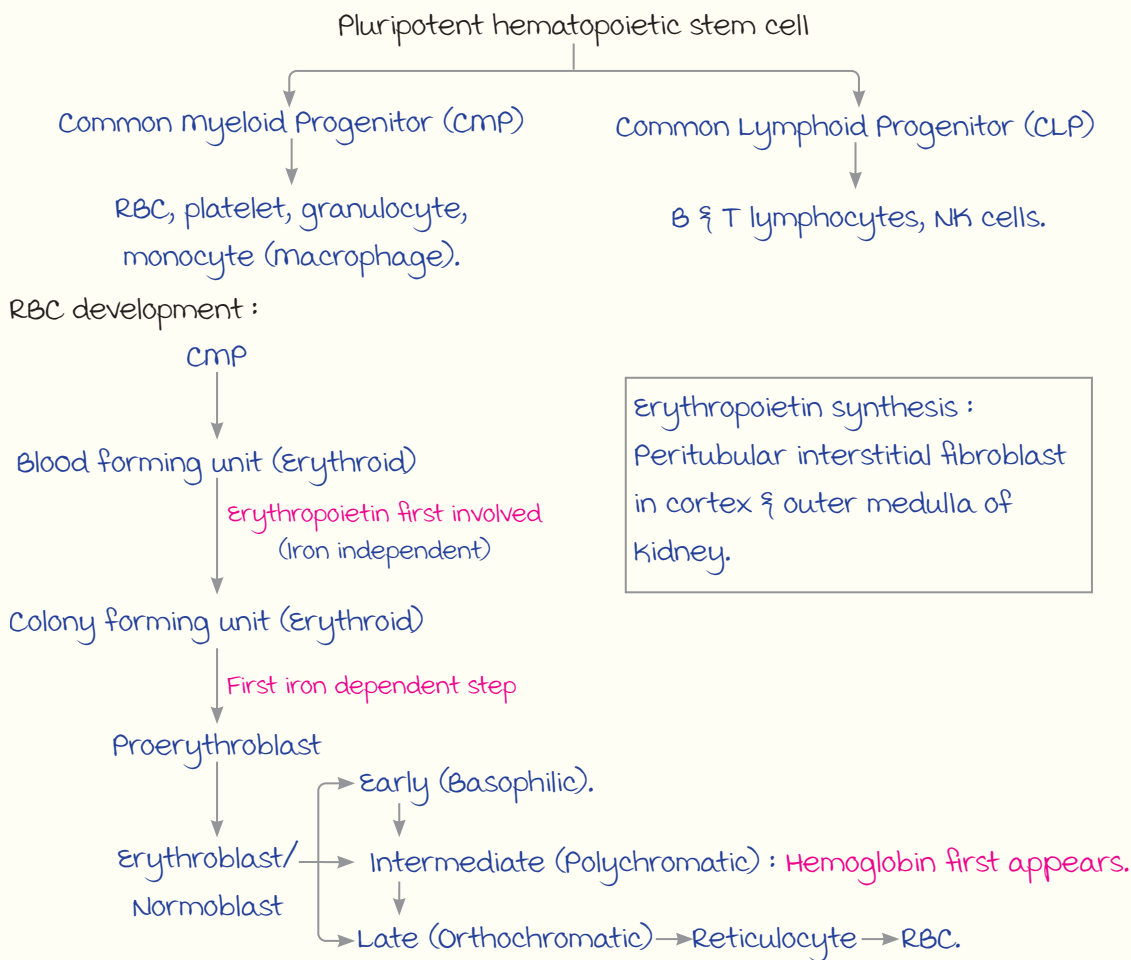 Pluripotent hematopoietic stem cell
Common Myeloid Progenitor (CMP)
Common Lymphoid Progenitor (CLP)
RBC, platelet, granulocyte,
monocyte (Macrophage).
B & T lymphocytes, NK cells.
RBC development :
CMP
Blood forming unit (Erythroid)
Erythropoietin first involved
(Iron independent)
Colony forming unit (Erythroid)
First iron dependent step
Proerythroblast
Erythroblast/
Normoblast
Early (Basophilic).
Intermediate (Polychromatic) : Hemoglobin first appears.
Late (Orthochromatic) Reticulocyte RBC.
Erythropoietin synthesis :
Peritubular interstitial fibroblast
in cortex & outer medulla of
kidney.